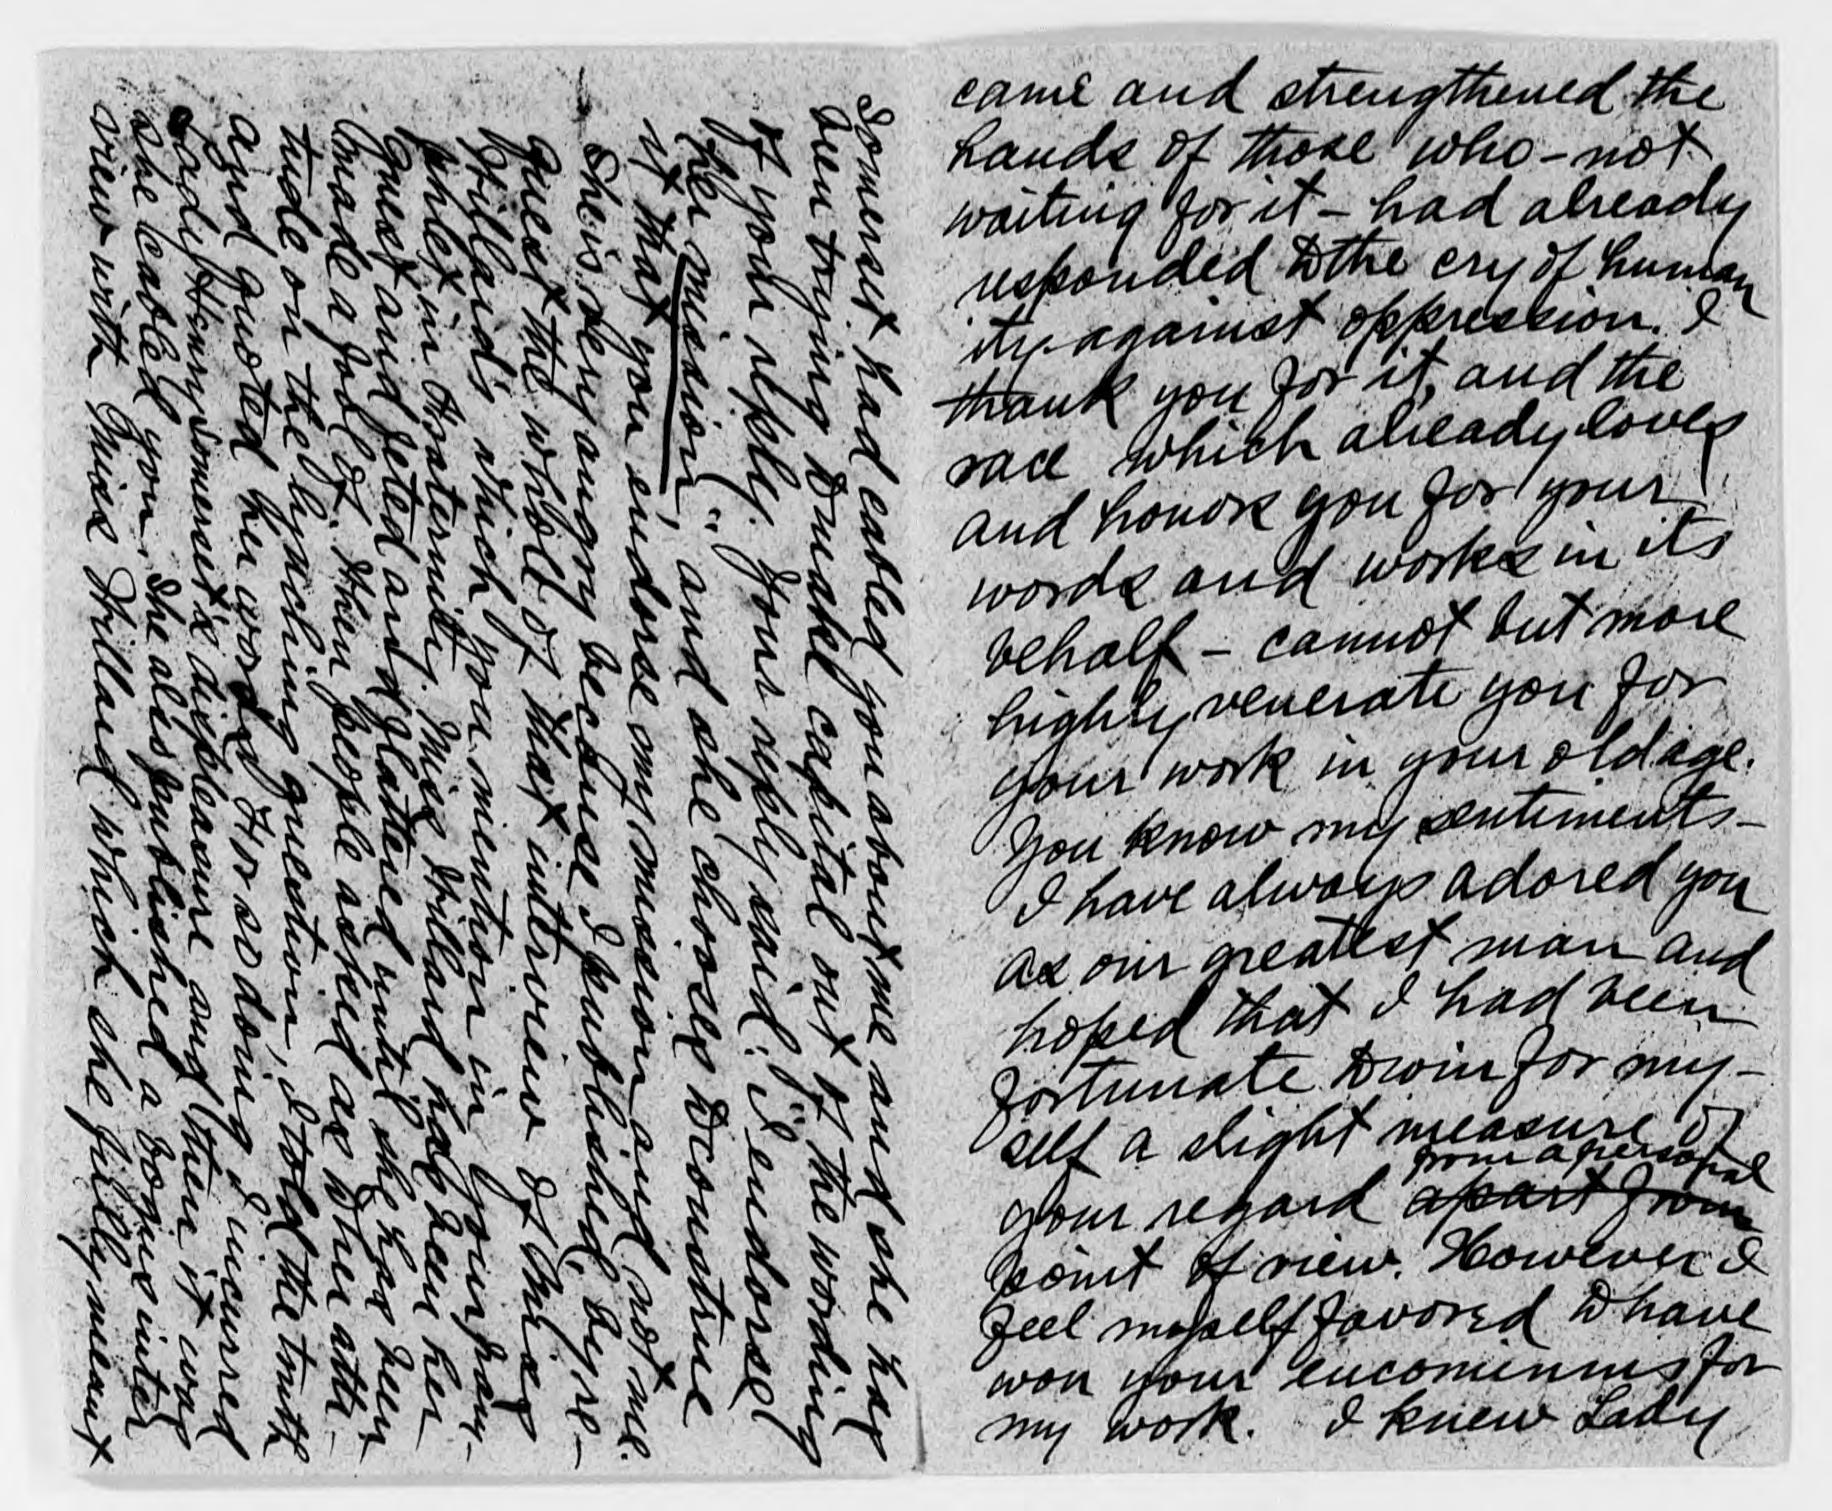 came and strengthened the
hands of those who – not
waiting for it – had already
responded to the cry of human
ity against oppression. I
thank you for it, and the
race which already loves
and honors you for your
words and works in its
behalf – cannot but more
highly venerate you for
your work in your old age.
You know my sentiments –
I have always adored you
as our greatest man and
hoped that I had been
fortunate to win for my–
self a slight measure of
from a personal
your regard apart from
point of view. However I
feel myself favored to have
won your encomiums for
my work. I knew Lady
Somerset had cabled you about me and she has
been trying to make capital out of the wording
of your reply. Your reply said: "I endorse
her mission", and she chooses to construe
it that you endorse my mission and not me.
She is very angry because I published, by re–
quest the whole of that interview of Miss
Willard's which you mention in your pam–
phlet in Fraternity. Miss Willard has been her
guest and feted and flattered until she has been
made a fool of. When people asked as to her atti–
tude on the lynching question, I told the truth
and quoted her words. For so doing I incurred
Lady Henry Somerset's displeasure and then it was
she cabled you. She also published a bogus inter
view with Miss Willard which she fully meant